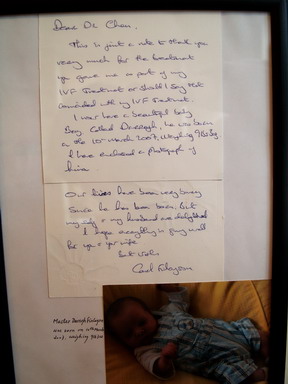 Dear Dr Chen,
This is just a note to thank you
very much for the treatment
you gave me as part of my
IVF Treatment or should I say that
coincided with my IVF Treatment.
I now have a beautiful baby
Boy called Darragh, he was born
on the 10th March 2007, weighing
I have enclosed a photograph of
him.
Our lives have been very busy
Since he has been born, but
my self + my husband are delighted
I hope everything is going well
for you + your wife
Best wishes
Carol
Master Darragh
was born on March
weighing